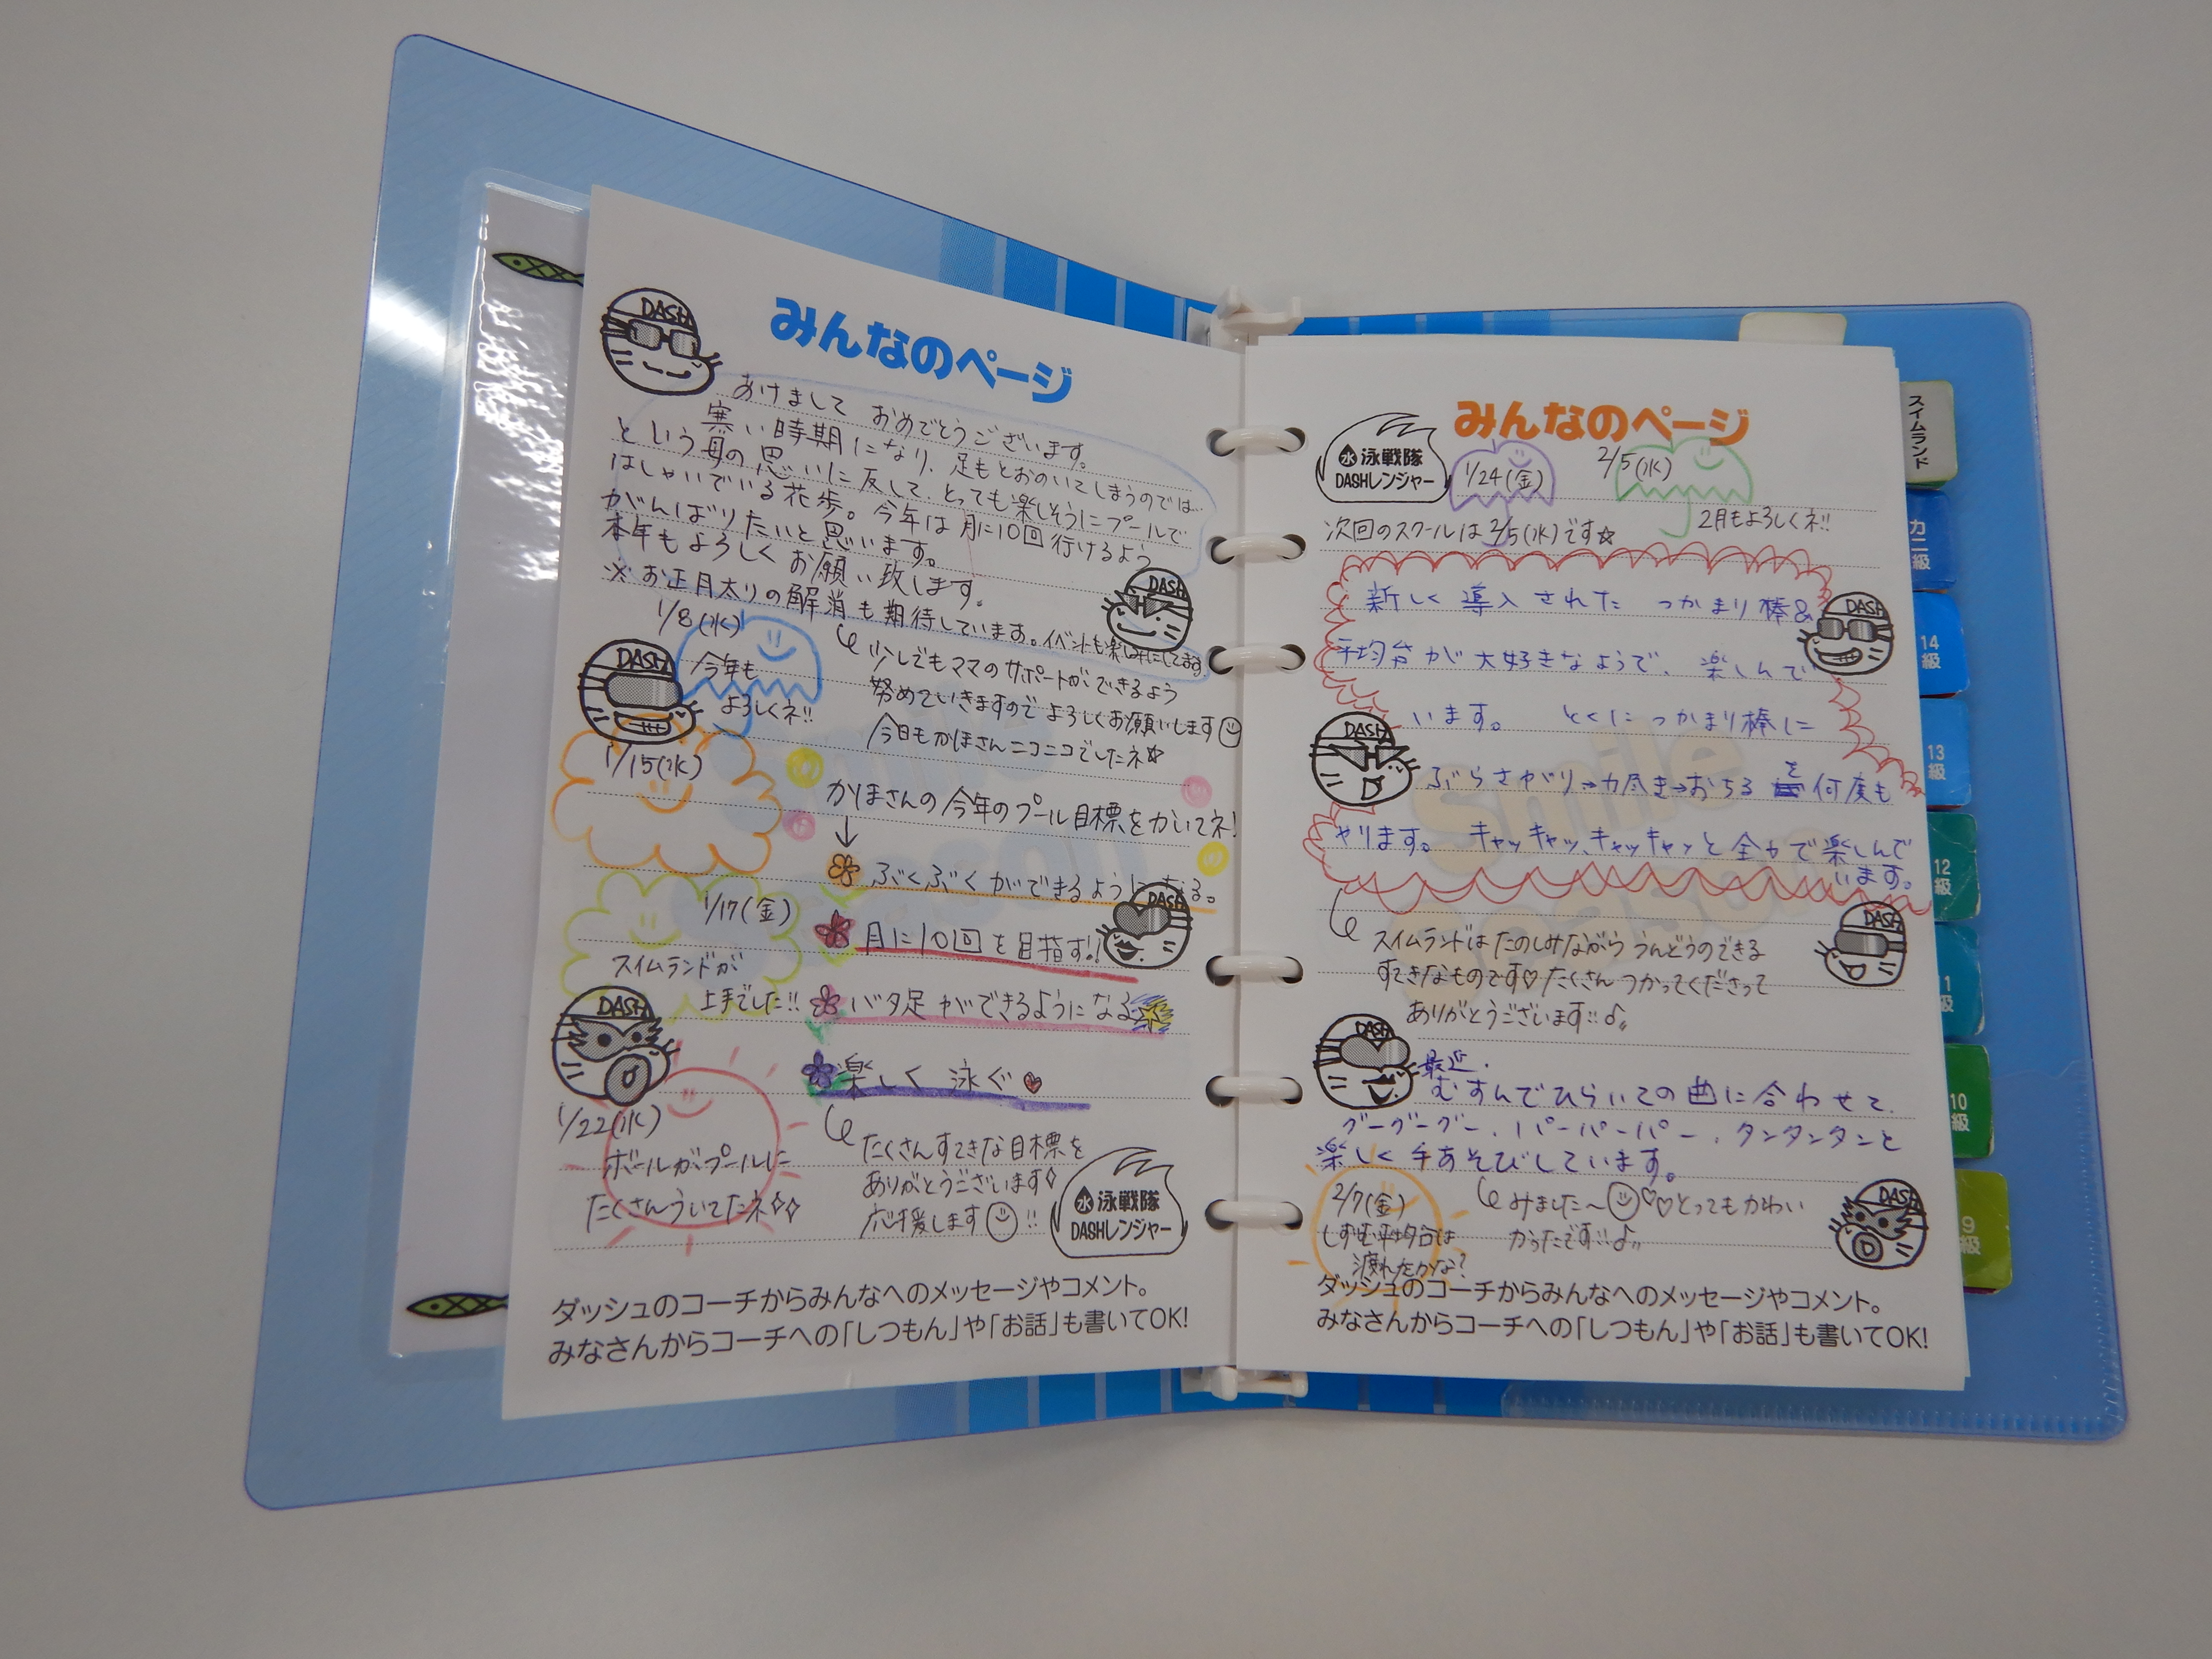 みんなのページ
DASH
あけまして おめでとうございます。
寒い時期になり、足もとおのいてしまうのでは…
という母の思いに反して、とっても楽しそうにプールで
はしゃいでいる花歩。今年は月に10回行けるよう
がんばりたいと思います。
本年もよろしくお願い致します。
※お正月太りの解消も期待しています。イベントも楽しみにしてます。
DASH
1/8(水)
今年も
よろしくネ!!
DASH
少しでもママのサポートができるよう
努めていきますので よろしくお願いします
今日もかほさんニコニコでしたネ☆
1/15(水)
かほさんの今年のプール目標をかいてネ!
↓
ぶくぶくができるようになる。
月に10回を目指す!!
バタ足ができるようになる
楽しく 泳ぐ
DASH
1/17(金)
スイムランドが
上手でした!!
DASH
1/22(水)
ボールがプールに
たくさんういてたネ
たくさんすてきな目標を
ありがとうございます
応援します!!
水 泳戦隊
DASHレンジャー
ダッシュのコーチからみんなへのメッセージやコメント。
みなさんからコーチへの「しつもん」や「お話」も書いてOK!
みんなのページ
水 泳戦隊
DASHレンジャー
1/24(金)
2/5(水)
次回のスクールは2/5(水)です☆
2月もよろしくネ!!
新しく導入された つかまり棒&
平均台が大好きなようで、楽しんで
います。 とくにつかまり棒に
ぶらさがり→力尽き→おちるを何度も
やります。 キャッキャッ、キャッキャッと全力で楽しんで
います。
DASH
DASH
スイムランドは たのしみながら うんどうのできる
すてきなものです♡たくさん つかってくださって
ありがとうございます!!♪
DASH
DASH
最近、
むすんでひらいての曲に合わせて、
グーグーグー、パーパーパー、タンタンタンと
楽しく手あそびしています。
2/7(金)
しずむ平均台は
渡れたかな?
みました〜♡♡とってもかわい
かったです!!♪
DASH
ダッシュのコーチからみんなへのメッセージやコメント。
みなさんからコーチへの「しつもん」や「お話」も書いてOK!
スイムランド
カニ級
14級
13級
12級
10級
9級